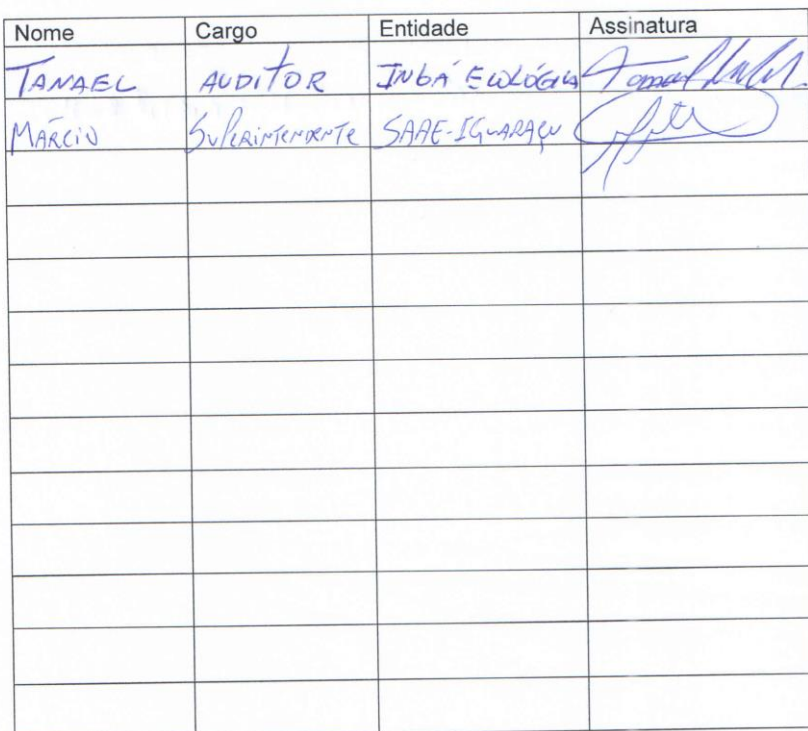 Nome Cargo Entidade Assinatura
TANAEL AUDITOR INGÁ ECOLÓGICA
MÁRCIO SUPERINTENDENTE SAAE-IGUARAÇU